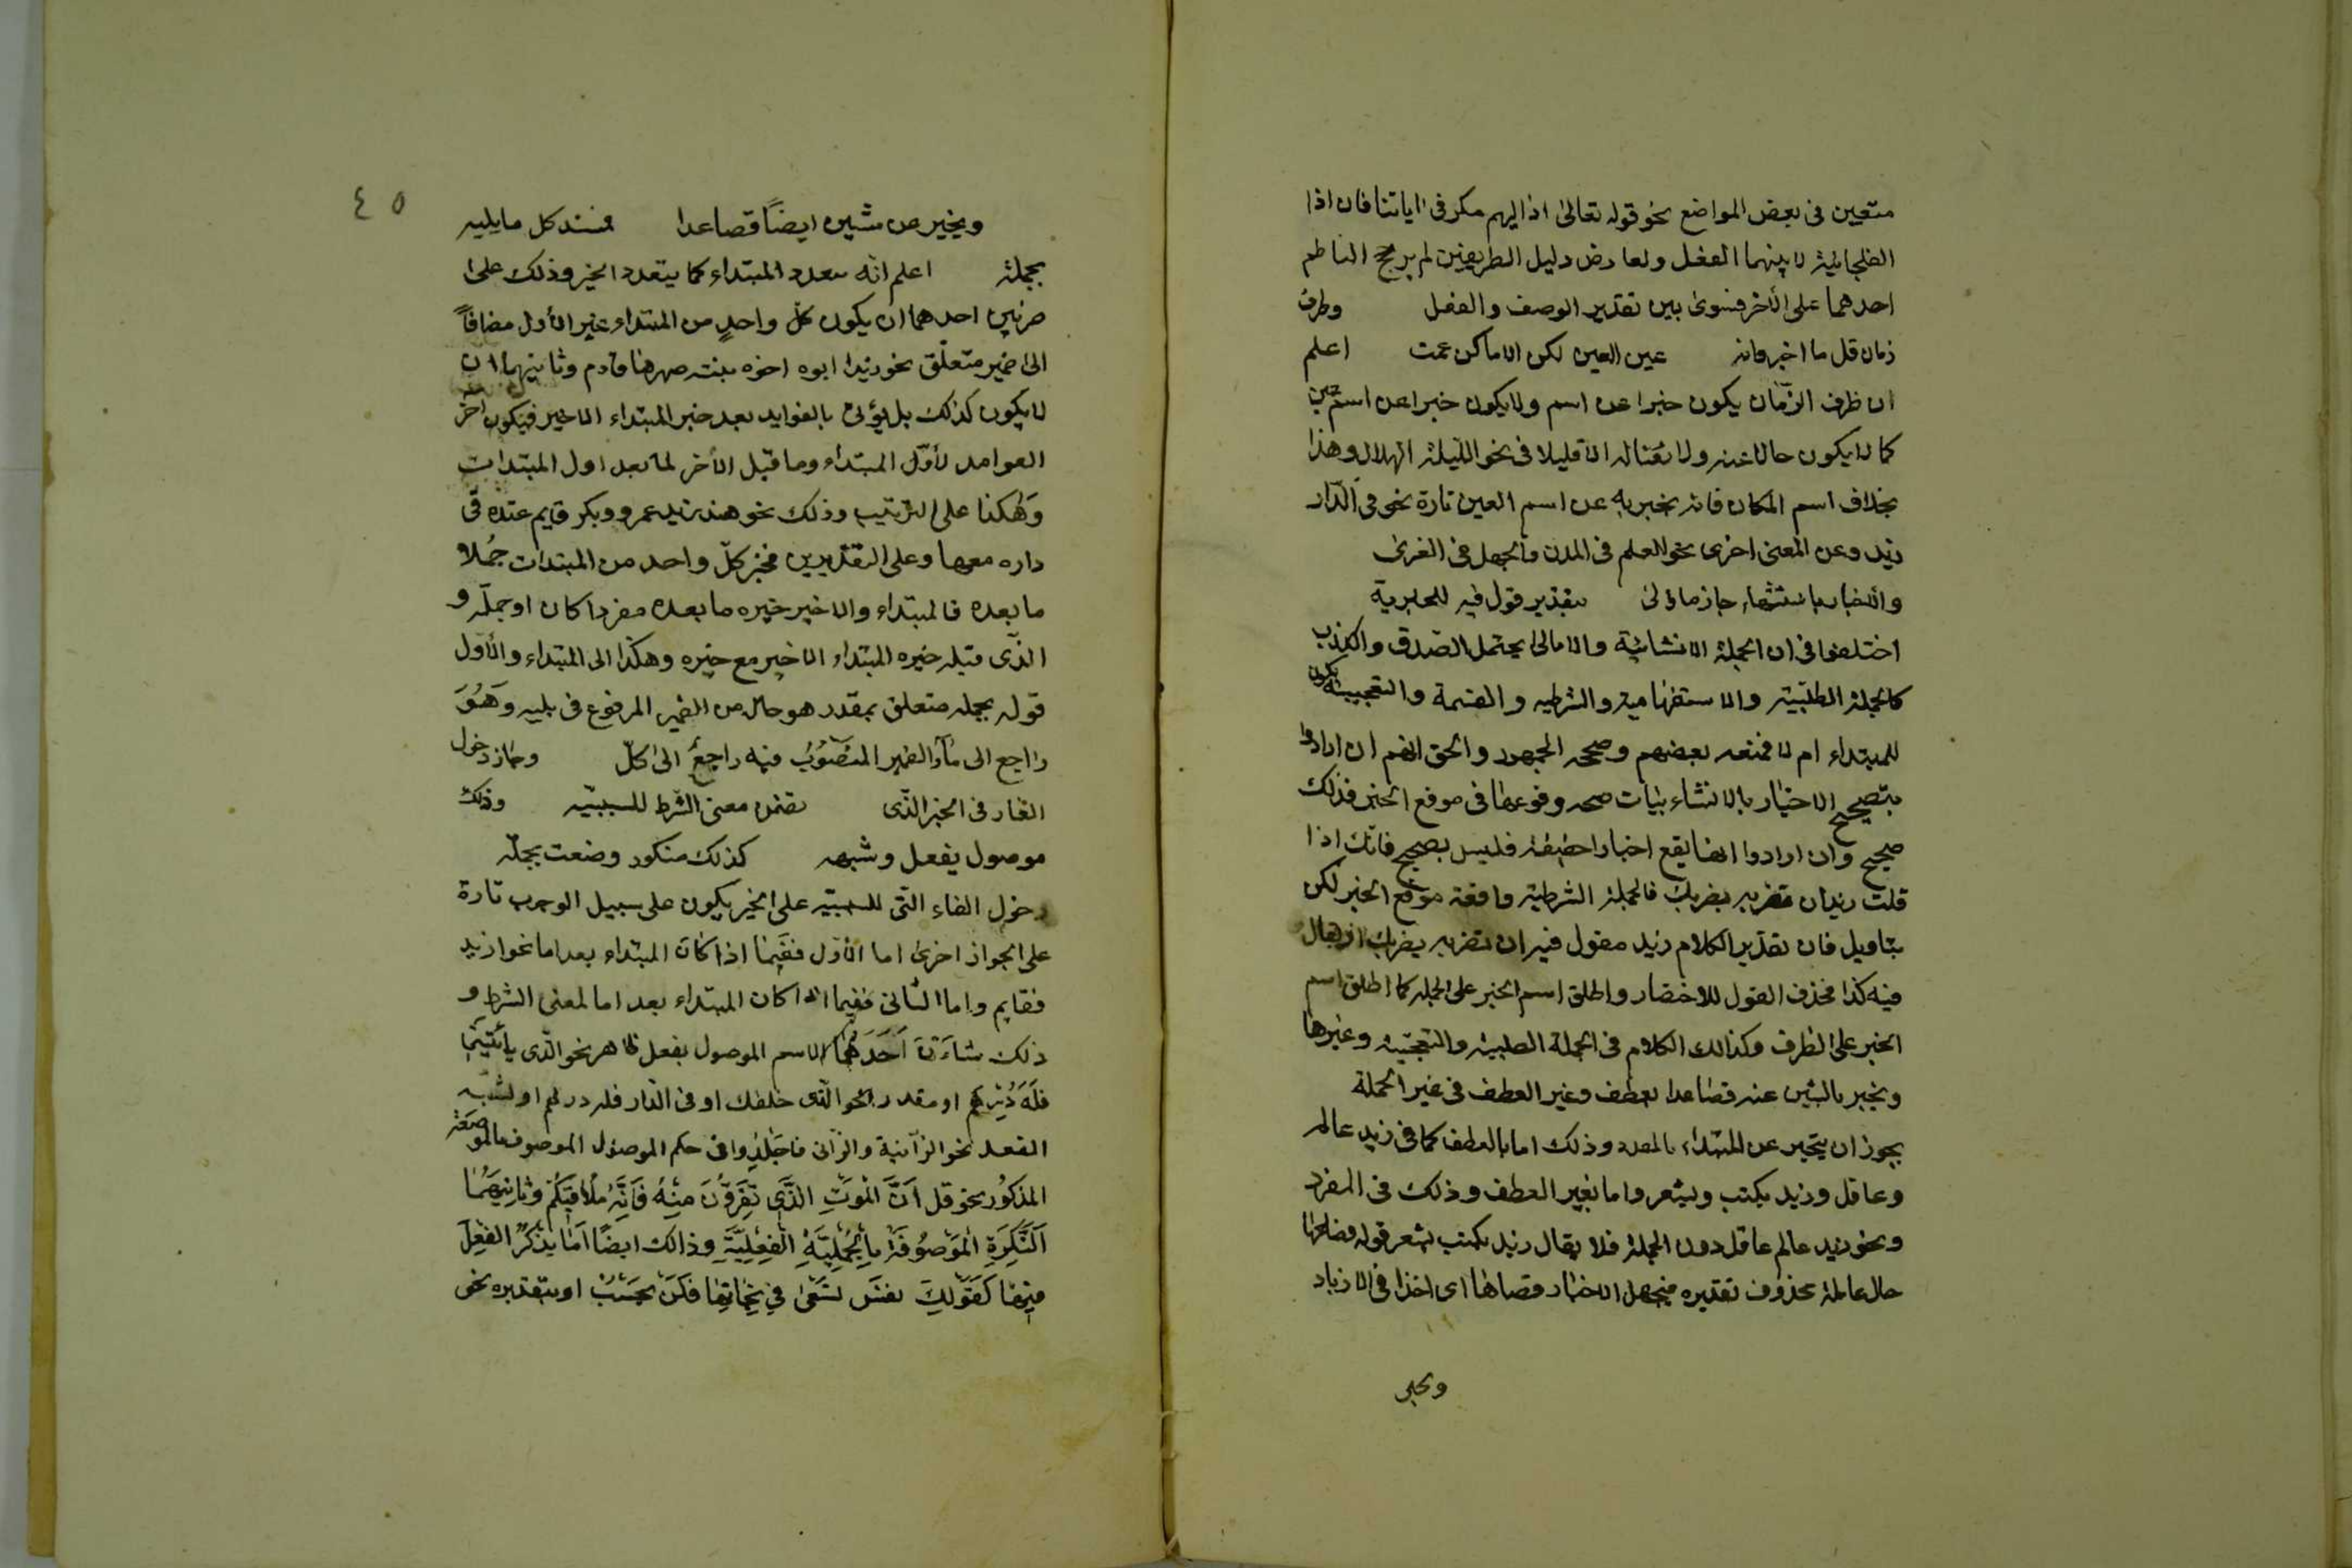 متعين فى بعض المواضع نحو قوله تعالى اذا لهم مكر فى اياتنا فان اذا
الفجائية لا يليهما الفعل ولعارض دليل الطريفين لم يرجح الناظم
احدهما على الآخر فسوى بين تقدير الوصف والفعل وظرف
زمان قل ما اخبروا به عين العين لكن الاماكن عمت اعلم
ان ظرف الزمان يكون خبرا عن اسم ولا يكون خبرا عن اسم عين
كما لا يكون حالا عنه ولا نعتا له الا قليلا فى نحو الليلة الهلال وهذا
بخلاف اسم المكان فانه يخبر به عن اسم العين تارة نحو فى الدار
زيد وعن المعنى اخرى نحو العلم فى المدن والجهل فى القرى
والاخبار بانشاء جاز ماؤلى بتقدير قول فيه للخبرية
اختلفوا فى ان الجملة الانشائية والامالى يحتمل الصدق والكذب
كالجملة الطلبية والاستفهامية والشرطيه والقسمة والتعجبية يكون
للمبتداء ام لا فمنعه بعضهم وصححه الجمهور والحق انهم ان ارادوا
بتصحيح الاخبار بالانشاء بيات صحه وقوعها فى موقع الخبر فذلك
صحيح وان ارادوا انها يقع اخبارا حقيقة فليس بصحيح فانك اذا
قلت زيد ان تضربه يضربك فالجملة الشرطية واقعة موقع الخبر لكن
بتاويل فان تقدير الكلام زيد مقول فيه ان تضربه يضربك او يقال
فيه كذا فحذف القول للاختصار واطلق اسم الخبر على الجملة كما اطلق اسم
الخبر على الظرف وكذالك الكلام فى الجملة الطلبية والتعجبية وغيرها
ويخبر باثنين عنه فصاعدا بعطف وغير العطف فى غير الجملة
يجوز ان يخبر عن المبتداء بالمعدد وذلك اما بالعطف كما فى زيد عالم
وعاقل وزيد يكتب ويشعر واما بغير العطف وذلك فى المفرد
ونحو زيد عالم عاقل دون الجملة فلا يقال زيد يكتب يشعر قوله فصاعدا
حال عامله محذوف تقديره فيجهل الاخبار فصاعدا اى اخذا فى الازياد
٤٥
ويخبر من مشيين ايضاً فصاعدا فسند كل ما يليه
بجملة اعلم انه يتعدد المبتداء كما يتعدد الخبر وذلك على
ضربين احدهما ان يكون كل واحد من المبتداء غير الأول مضافاً
الى ضمير متعلق نحو زيد ابوه اخوه بنته صهرها قادم وثانيهما ان
لا يكون كذلك بل يؤتى بالعوايد بعد خبر المبتداء الاخير فيكون اخر
العوامد لأول المبتداء وما قبل الأخر لما بعد اول المبتدات
وهكذا على الترتيب وذلك نحو هند زيد عمرو وبكر قايم عنده فى
داره معها وعلى التقديرين فخبر كل واحد من المبتدات جملا
ما بعده فالمبتداء والاخير خبره ما بعده مفردا كان او جملة و
الذى قبله خبره المبتداء الاخير مع خبره وهكذا الى المبتداء والأول
قوله بجملة متعلق بمقدر هو حال من الضمير المرفوع فى يليه وهو
راجع الى ما والضمير المنصوب فيه راجع الى كل وجاز دخول
الفاء فى الخبر الذى تضمن معنى الشرط للسببيه وذلك
موصول يفعل وشبهه كذلك منكور وضعت بجملة
دخول الفاء التى للسببية على الخبر يكون على سبيل الوجوب تارة
على الجواز اخرى اما الأول ففيما اذا كان المبتداء بعد اما نحو ازيد
فقايم واما الثانى ففيما اذا كان المبتداء بعد اما لمعنى الشرط و
ذلك احدهما الاسم الموصول بفعل ظاهر نحو الذى ياتينى
فله درهم او مقدر نحو الذى خلفك او فى الدار فله درهم او لشبه
الفعل نحو الزانية والزانى فاجلدوا فى حكم الموصول الموصوف بالموصول صفته
المذكور نحو قل ان الموت الذى تفرون منه فانه ملاقيكم وثانيهما
النكرة الموصوفة بالجملية الفعلية وذالك ايضا اما يذكر الفعل
فيها كقولك نفس تسعى فى نجاتها فلن تحسب او بتقديره نحو